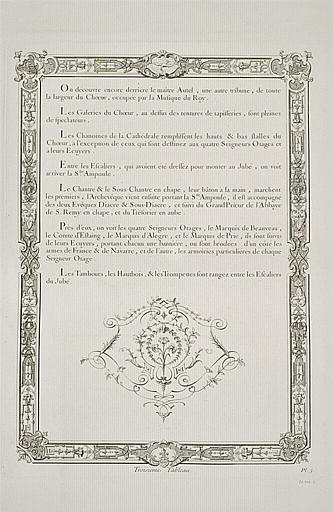 On découvre encore derrière le maitre Autel, une autre tribune, de toute
la largeur du Chœur, occupée par la Musique du Roy.
Les Galeries du Chœur, au dessus des tentures de tapisseries, sont pleines
de spectateurs.
Les Chanoines de la Cathédrale remplissent les hauts & bas stalles du
Chœur, à l'exception de ceux qui sont destinez aux quatre Seigneurs Otages et
à leurs Ecuyers.
Entre les Escaliers, qui avoient été dressez pour monter au Jubé, on voit
arriver la Ste Ampoule.
Le Chantre & le Sous-Chantre en chape, leur bâton a la main, marchent
les premiers, l'Archevêque vient ensuite portant la Ste Ampoule, il est accompagné
des deux Evêques Diacre & Sous-Diacre, et suivi du Grand Prieur de l'Abbaye
de S. Remy en chape, et du Trésorier en aube.
Près d'eux, on voit les quatre Seigneurs Otages, le Marquis de Beauveau,
le Comte d'Estaing, le Marquis d'Alegre, et le Marquis de Prie, ils sont suivis
de leurs Ecuyers, portant chacun une banniere, ou sont brodées d'un côté les
armes de France & de Navarre, et de l'autre, les armoiries particulieres de chaque
Seigneur Otage.
Les Tambours, les Hautbois, & les Trompettes sont rangez entre les Escaliers
du Jubé.
Troisieme Tableau.
Pl. 3